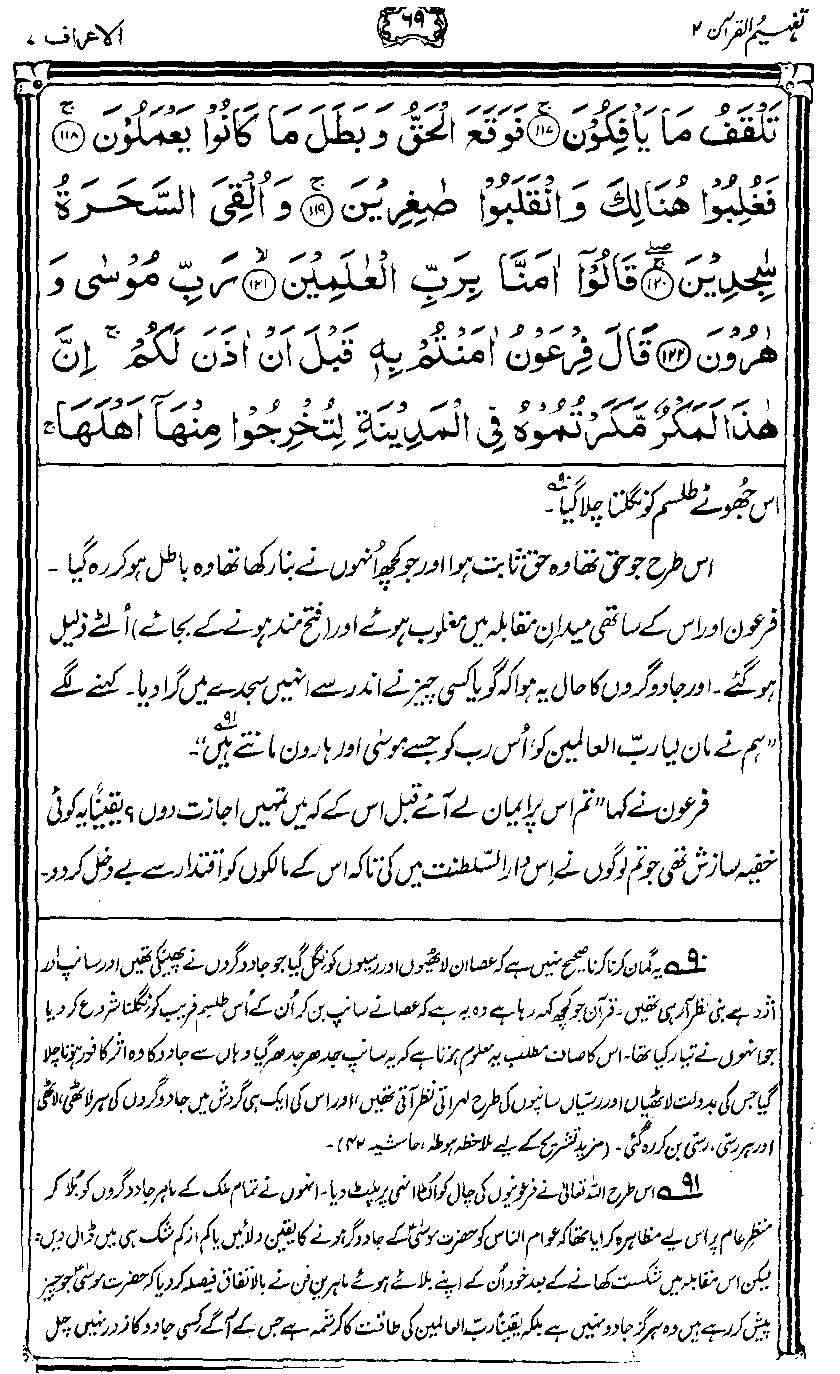 تفہیم القرآن ۲
۶۹
الاعراف ۷
تَلْقَفُ مَا يَأْفِكُوْنَ ۚ﴿۱۱۷﴾ فَوَقَعَ الْحَقُّ وَبَطَلَ مَا كَانُوْا يَعْمَلُوْنَ ۚ﴿۱۱۸﴾
فَغُلِبُوْا هُنَالِكَ وَانْقَلَبُوْا صٰغِرِيْنَ ۚ﴿۱۱۹﴾ وَاُلْقِيَ السَّحَرَةُ
سٰجِدِيْنَ ۖ﴿۱۲۰﴾ قَالُوْٓا اٰمَنَّا بِرَبِّ الْعٰلَمِيْنَ ۙ﴿۱۲۱﴾ رَبِّ مُوْسٰى وَ
هٰرُوْنَ ﴿۱۲۲﴾ قَالَ فِرْعَوْنُ اٰمَنْتُمْ بِهٖ قَبْلَ اَنْ اٰذَنَ لَكُمْ ۚ اِنَّ
هٰذَا لَمَكْرٌ مَّكَرْتُمُوْهُ فِي الْمَدِيْنَةِ لِتُخْرِجُوْا مِنْهَآ اَهْلَهَا ۚ
اس جھوٹے طلسم کو نگلتا چلا گیا۹۰۔
اس طرح جو حق تھا وہ حق ثابت ہوا اور جو کچھ اُنہوں نے بنا رکھا تھا وہ باطل ہو کر رہ گیا ۔
فرعون اور اس کے ساتھی میدانِ مقابلہ میں مغلوب ہوئے اور (فتح مند ہونے کے بجائے) اُلٹے ذلیل
ہو گئے۔ اور جادوگروں کا حال یہ ہوا کہ گویا کسی چیز نے اندر سے انہیں سجدے میں گرا دیا۔ کہنے لگے
”ہم نے مان لیا ربّ العالمین کو، اُس رب کو جسے موسیٰ اور ہارون مانتے ہیں۹۱“۔
فرعون نے کہا ”تم اس پر ایمان لے آئے قبل اس کے کہ میں تمہیں اجازت دوں؟ یقیناً یہ کوئی
خفیہ سازش تھی جو تم لوگوں نے اِس دارالسّلطنت میں کی تاکہ اس کے مالکوں کو اقتدار سے بے دخل کر دو۔
۹۰ یہ گمان کرنا کرنا صحیح نہیں ہے کہ عصا ان لاٹھیوں اور رسیوں کو نگل گیا جو جادوگروں نے پھینکی تھیں اور سانپ اور
اژدہے بنی نظر آرہی تھیں۔ قرآن جو کچھ کہہ رہا ہے وہ یہ ہے کہ عصا نے سانپ بن کر اُن کے اُس طلسم فریب کو نگلنا شروع کر دیا
جو انہوں نے تیار کیا تھا۔ اس کا صاف مطلب یہ معلوم ہوتا ہے کہ یہ سانپ جدھر جدھر گیا وہاں سے جادو کا وہ اثر کافور ہوتا چلا
گیا جس کی بدولت لاٹھیاں اور رسیاں سانپوں کی طرح لہراتی نظر آتی تھیں، اور اس کی ایک ہی گردش میں جادوگروں کی ہر لاٹھی، لاٹھی
اور ہر رسی، رسی بن کر رہ گئی۔ (مزید تشریح کے لیے ملاحظہ ہو طٰہٰ، حاشیہ ۴۲)۔
۹۱ اس طرح اللہ تعالیٰ نے فرعونیوں کی چال کو اُلٹا انہی پر پلٹ دیا۔ انہوں نے تمام ملک کے ماہر جادوگروں کو بُلا کر
منظرِ عام پر اس لیے مظاہرہ کرایا تھا کہ عوام الناس کو حضرت موسیٰؑ کے جادوگر ہونے کا یقین دلائیں یا کم از کم شک ہی میں ڈال دیں۔
لیکن اس مقابلہ میں شکست کھانے کے بعد خود اُن کے اپنے بلائے ہوئے ماہرینِ فن نے بالاتفاق فیصلہ کر دیا کہ حضرت موسیٰؑ جو چیز
پیش کر رہے ہیں وہ ہرگز جادو نہیں ہے بلکہ یقیناً ربّ العالمین کی طاقت کا کرشمہ ہے جس کے آگے کسی جادو کا زور نہیں چل